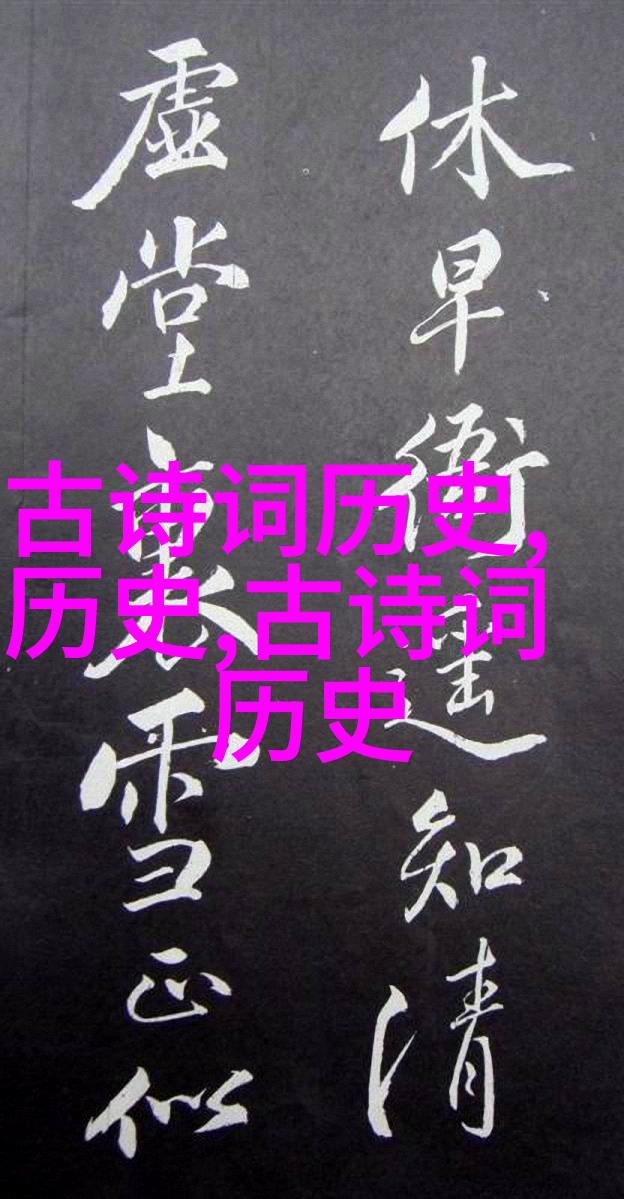 休早衙遥知清
虚堂裏雪正似
古诗词历史,
历史,古诗词
历史